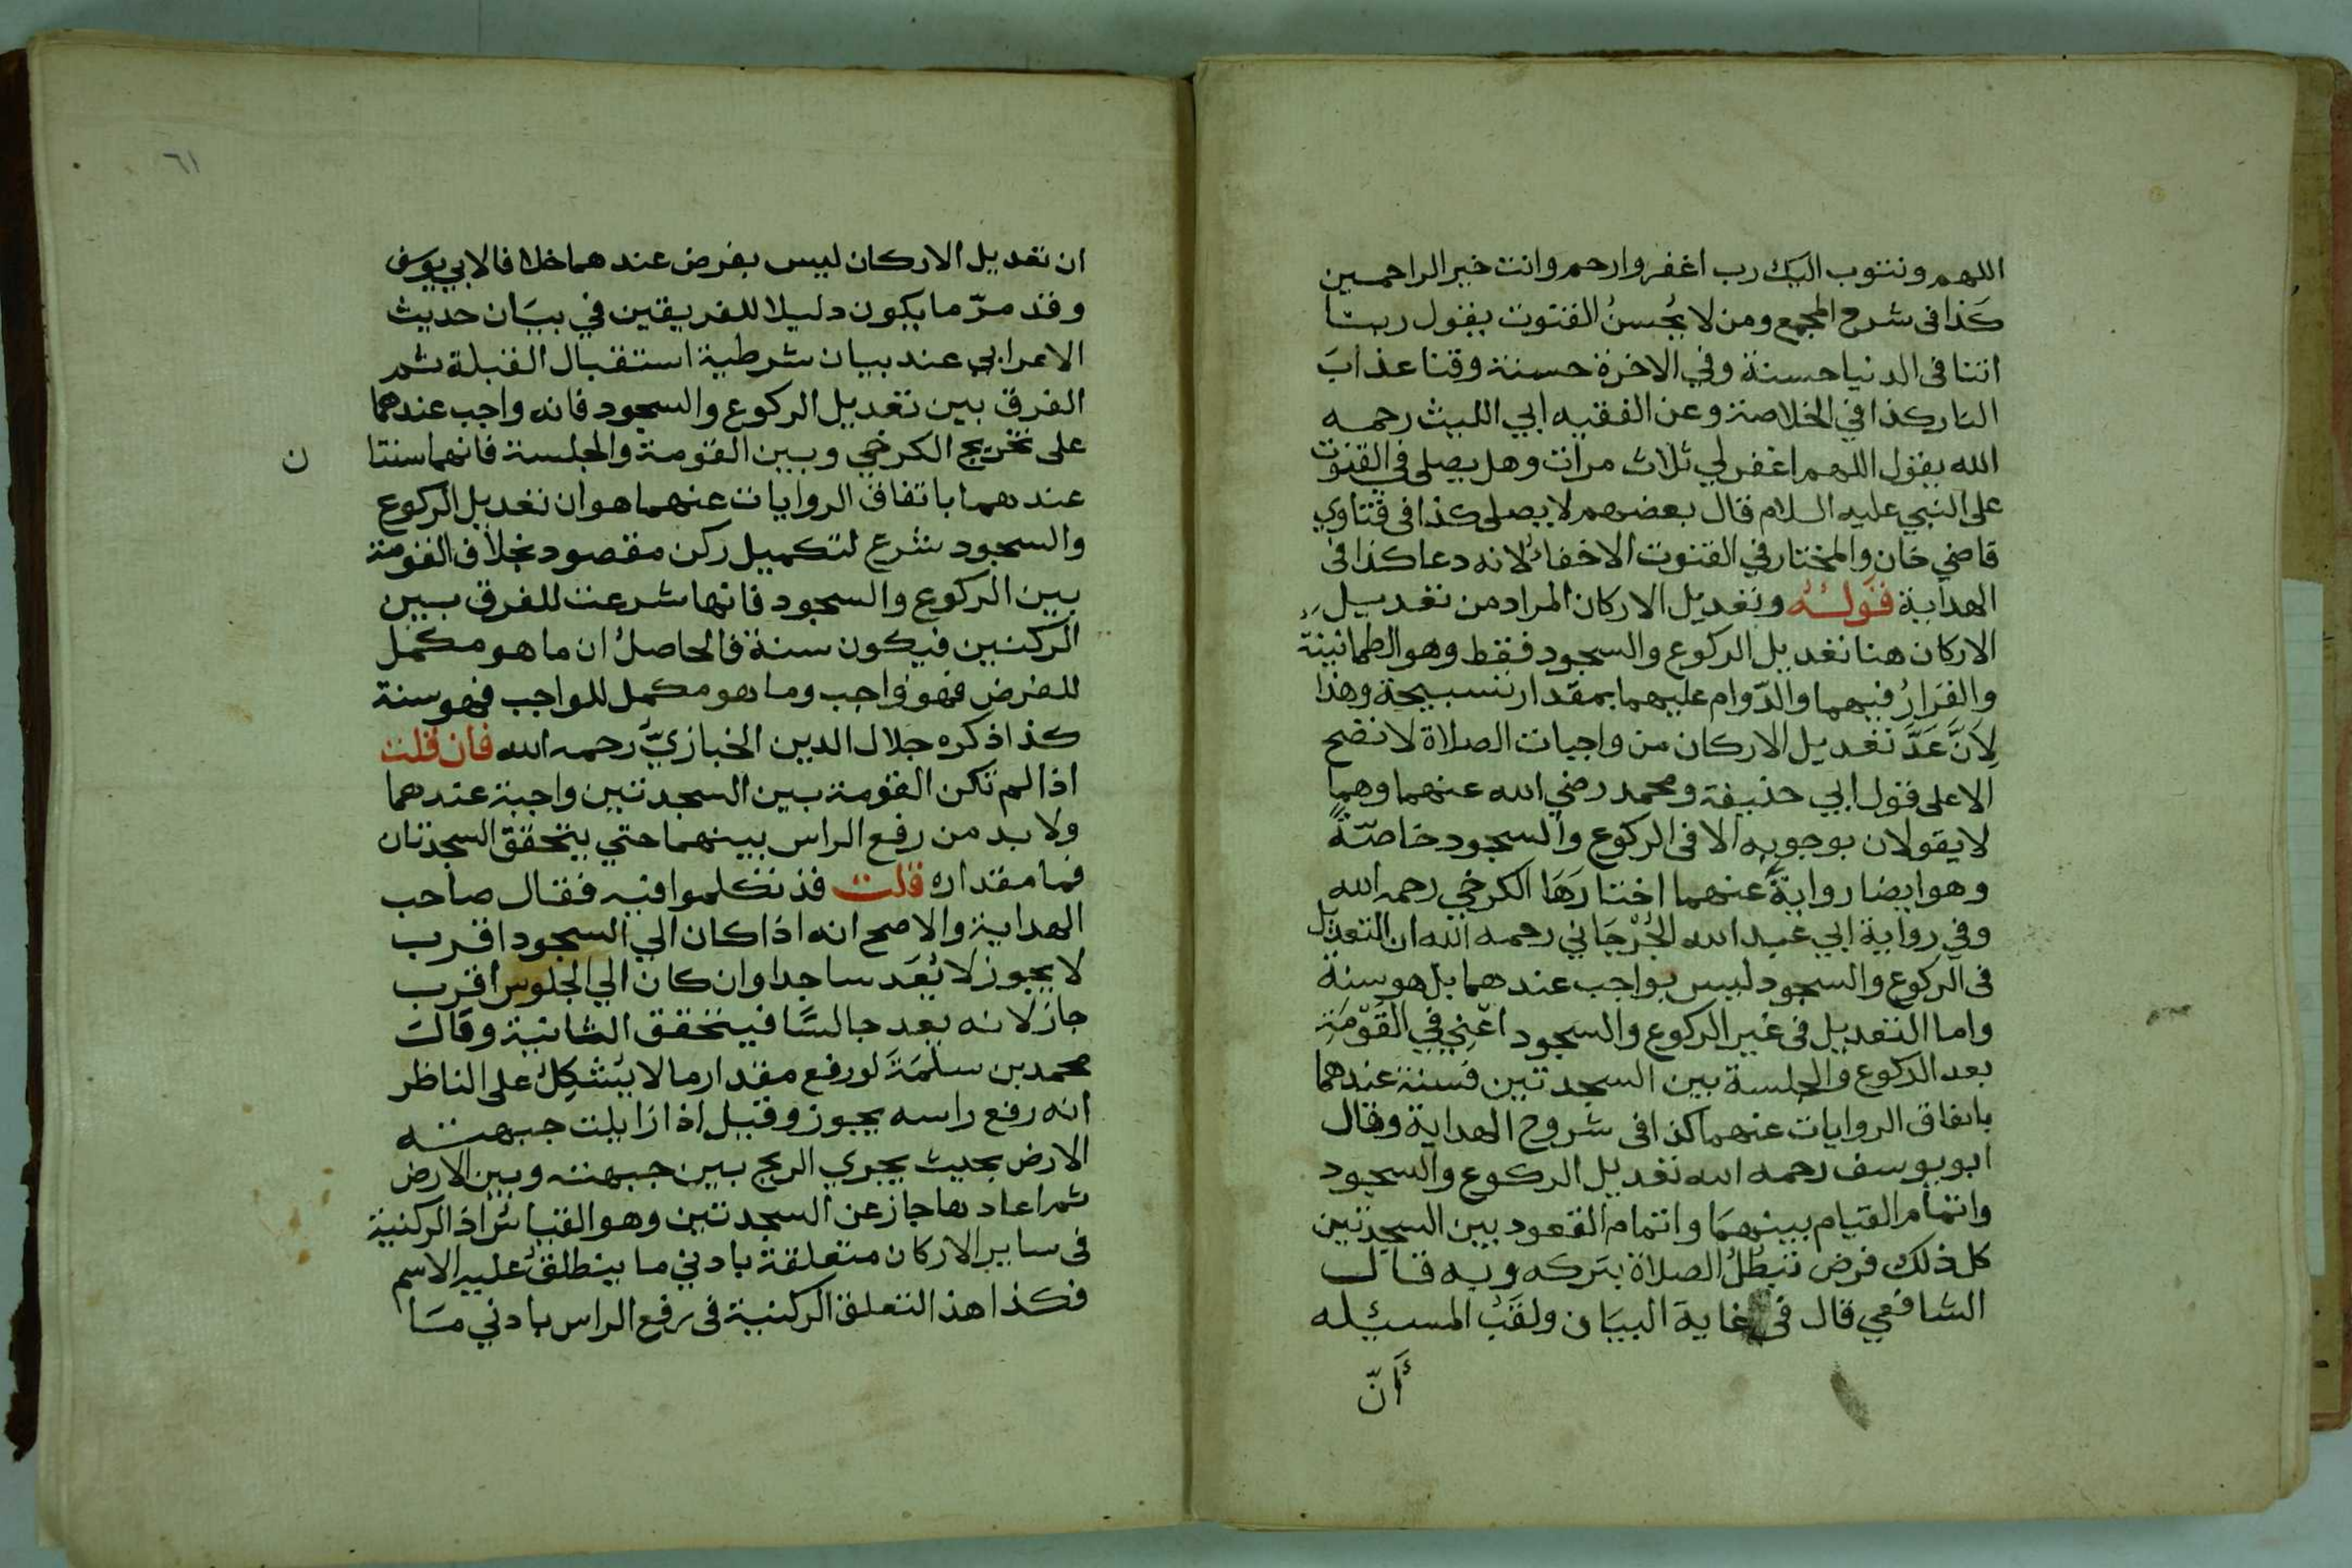 اللهم ونتوب اليك رب اغفر وارحم وانت خير الراحمين
كذا فى شرح المجمع ومن لا يُحسنُ القنوت يقول ربنا
اتنا فى الدنيا حسنة وفي الاخرة حسنة وقنا عذابَ
النار كذا في الخلاصة وعن الفقيه ابي الليث رحمه
الله يقول اللهم اغفر لي ثلاث مرات وهل يصلى في القنوت
على النبي عليه السلام قال بعضهم لا يصلى كذا فى فتاوي
قاضي خان والمختار في القنوت الاخفاء لانه دعا كذا فى
الهداية قوله وتعديل الاركان المراد من تعديل
الاركان هنا تعديل الركوع والسجود فقط وهو الطمانينة
والقَرارُ فيهما والدّوام عليهما بمقدار تسبيحة وهذا
لاَنَّ عَدَّ تعديل الاركان من واجبات الصلاة لا تصح
الا على قول ابي حنيفة ومحمد رضي الله عنهما وهما
لا يقولان بوجوبه الا فى الركوع والسجود خاصّةً
وهو ايضا روايةً عنهما اختارَهَا الكرخي رحمه الله
وفي رواية ابي عبد الله الجُرْجَاني رحمه الله ان التعديل
فى الركوع والسجود ليس بواجب عندهما بل هو سنة
واما التعديل فى غير الركوع والسجود اعْنِي في القَوْمَةِ
بعد الركوع والجلسة بين السجدتين فسنة عندهما
باتفاق الروايات عنهما كذا فى شروح الهداية وقال
ابو يوسف رحمه الله تعديل الركوع والسجود
واتمام القيام بينهمَا واتمام القعود بين السجدتين
كل ذلك فرض تبطُلُ الصلاة بتركه وبه قال
الشافعي قال فى غاية البيَان ولقَبُ المسئله
أنّ
٦١
ان تعديل الاركان ليس بفرض عندهما خلافا لابي يوسف
وقد مرّ ما يكون دليلا للفريقين في بيَان حديث
الاعرابي عند بيان شرطية استقبال القبلة ثم
الفرق بين تعديل الركوع والسجود فانه واجب عندهما
على تخريج الكرخي وبين القومة والجلسة فانهما سنتا ن
عندهما باتفاق الروايات عنهما هو ان تعديل الركوع
والسجود شرع لتكميل ركن مقصود بخلاف القومة
بين الركوع والسجود فانها شرعت للفرق بين
الركنين فيكون سنة فالحاصلُ ان ما هو مكمل
للفرض فهو واجب وما هو مكمل للواجب فهو سنة
كذا ذكره جلال الدين الخبازيّ رحمه الله فان قلت
اذا لم تكن القومة بين السجدتين واجبة عندهما
ولا بد من رفع الراس بينهما حتي يتحقق السجدتان
فما مقداره قلت قد تكلموا فيه فقال صاحب
الهداية والاصح انه اذا كان الي السجود اقرب
لا يجوز لا يُعَد ساجدا وان كان الي الجلوس اقرب
جاز لانه يعد جالسًا فيتحقق الثانية وقالَ
محمد بن سلمَةَ لو رفع مقدار ما لا يُشكِلُ على الناظر
انه رفع راسه يجوز وقيل اذا زايلت جبهته
الارض بحيث يجري الريح بين جبهته وبين الارض
ثم اعادها جاز عن السجدتين وهو القياسُ اذ الركنية
فى ساير الاركان متعلقة بادني ما ينطلقُ عليه الاسم
فكذا هذا لتعلق الركنية فى رفع الراس بادني مَا